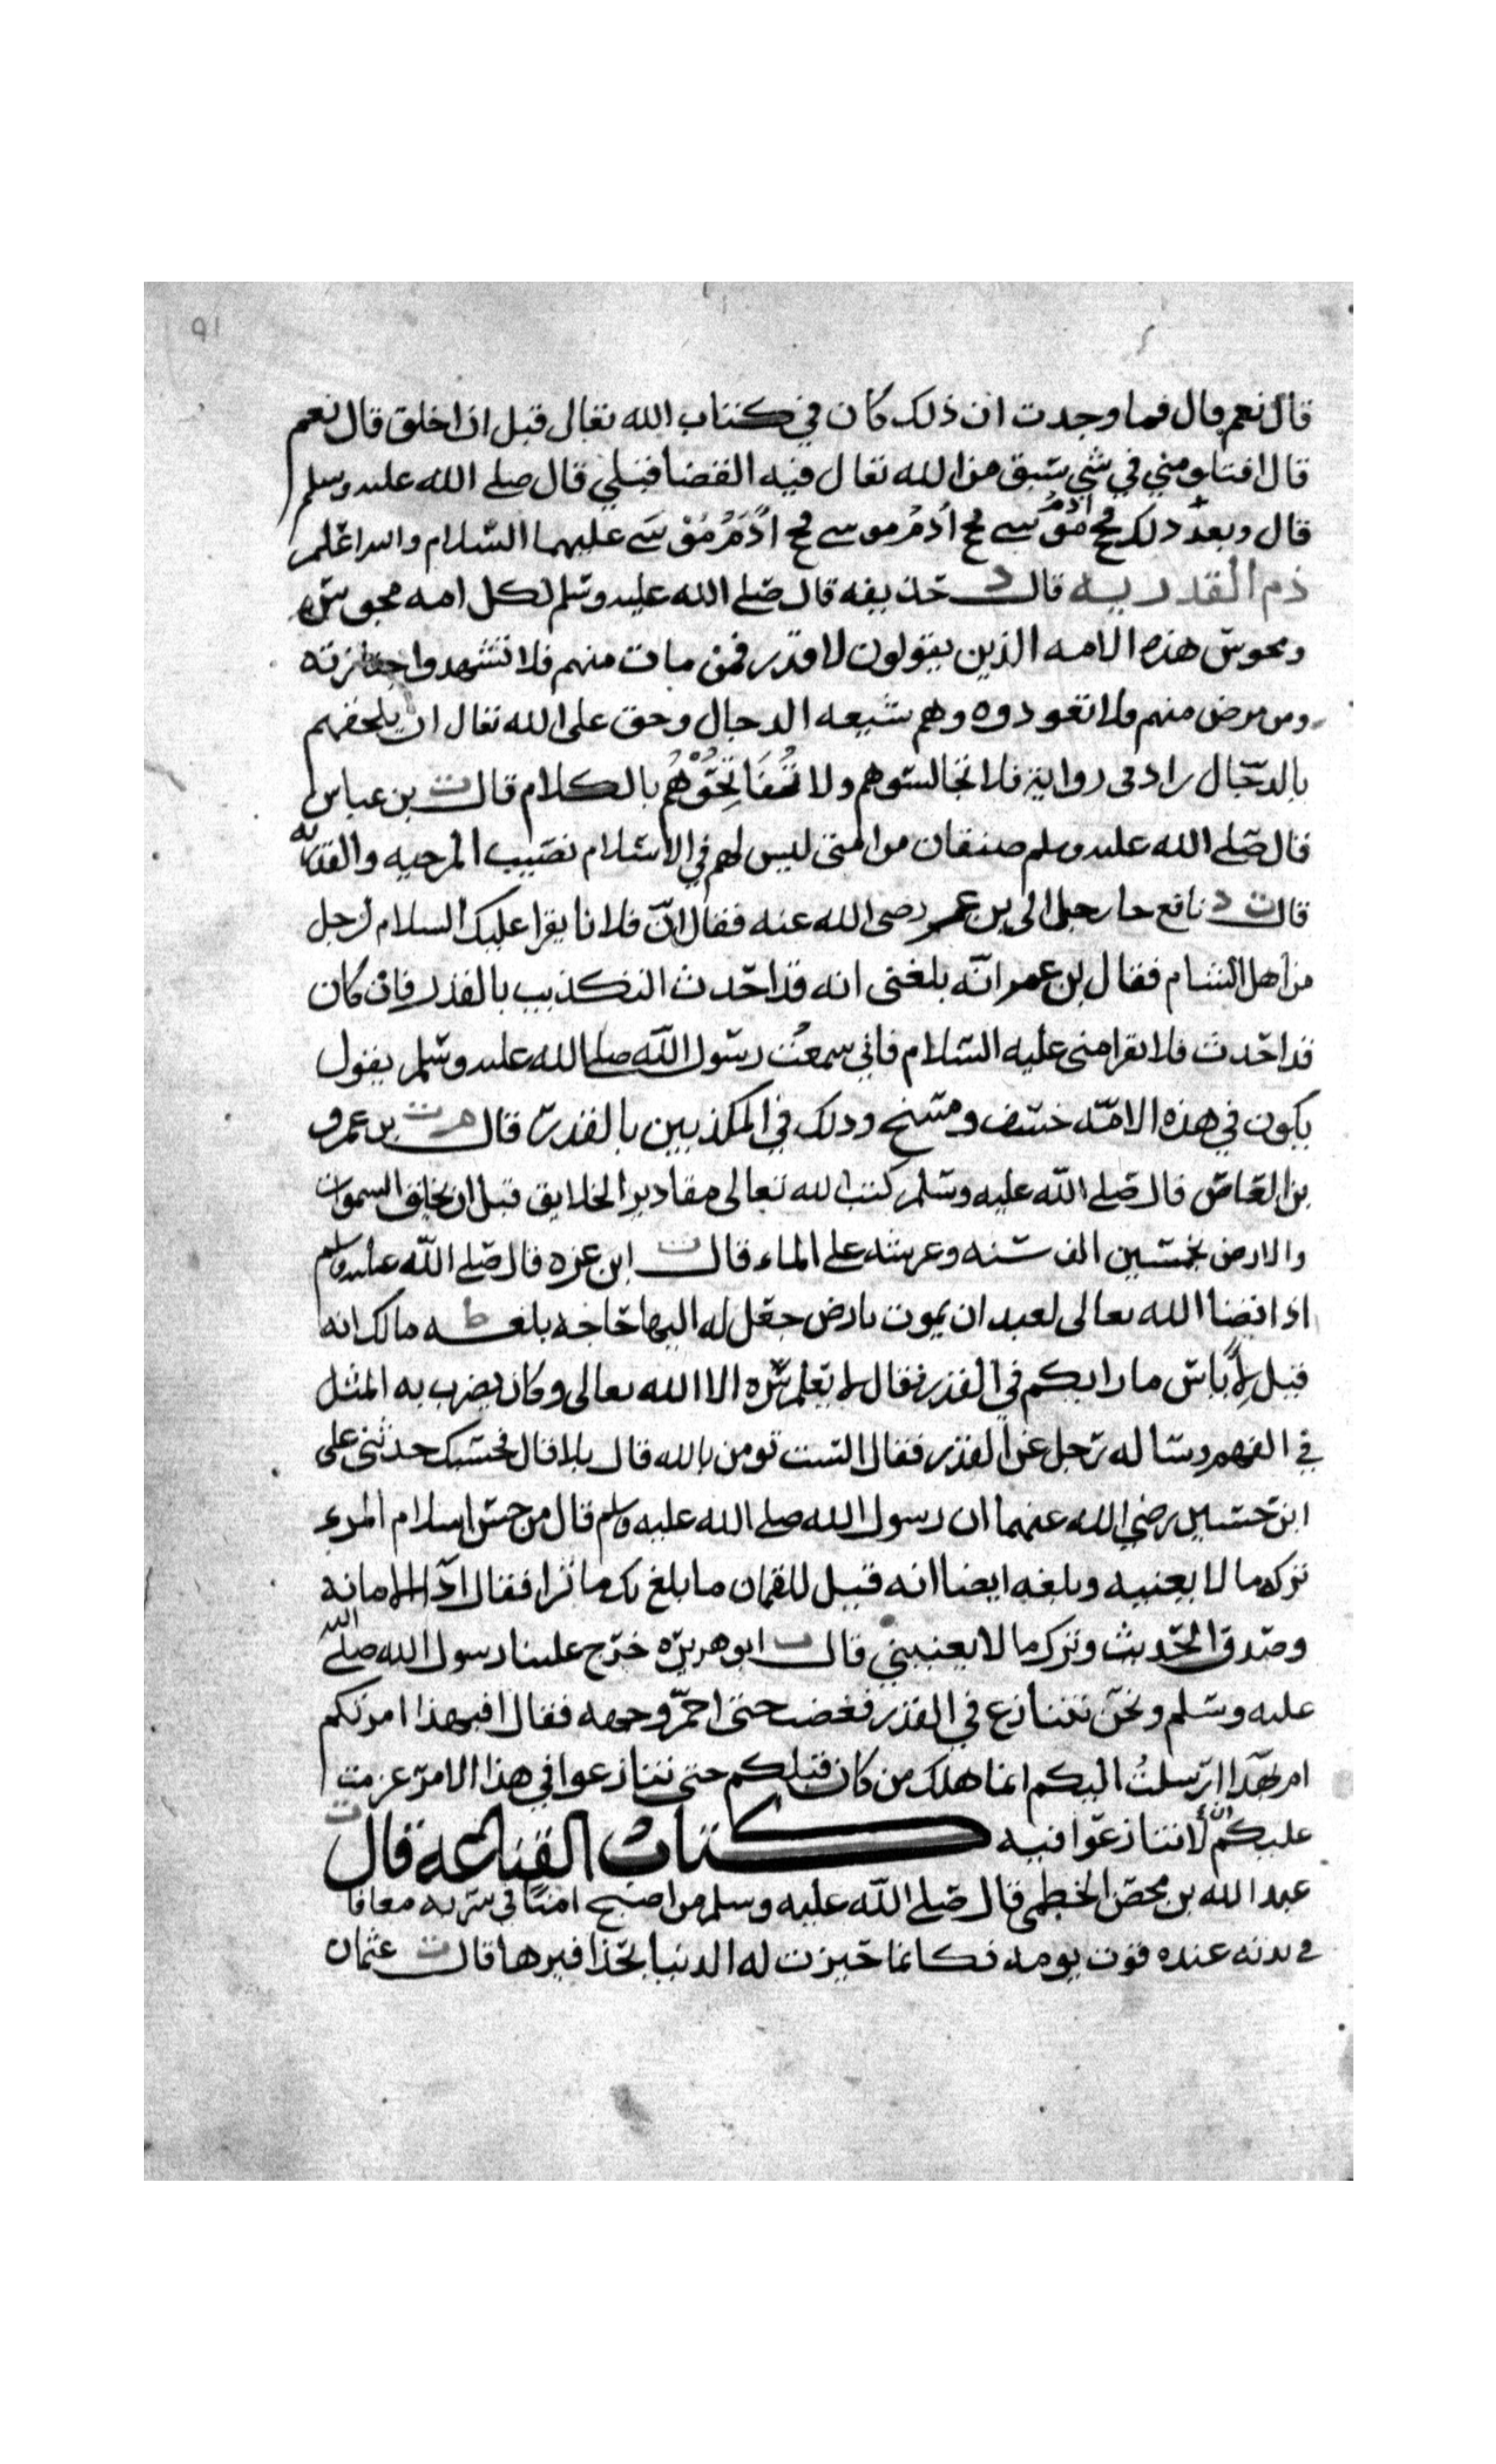 ٩١
قال نعم قال فما وجدت ان ذلك كان في كتاب الله تعالى قبل ان اخلق قال نعم
قال افتلومني في شي سبق من الله تعال فيه القضا قبلي قال صلى الله عليه وسلم
قال وبعد ذلك فحج آدم موسى فحج آدم موسى فحج آدم موسى عليهما السلام والله اعلم
ذم القدريه قال د حذيفه قال صلى الله عليه وسلم لكل امه مجوس
ومجوس هذه الامه الذين يقولون لا قدر فمن مات منهم فلا تشهدوا جنازته
ومن مرض منهم فلا تعودوه وهم شيعه الدجال وحق على الله تعال ان يلحقهم
بالدجال زاد فى رواية فلا تجالسوهم ولا تفاتحوهم بالكلام قال ت بن عباس
قال صلى الله عليه وسلم صنفان من امتى ليس لهم في الاسلام نصيب المرجيه والقدريه
قال ت د نافع جا رجل الى بن عمر رضى الله عنه فقال ان فلانا يقرا عليك السلام لرجل
من اهل الشام فقال بن عمر انه بلغنى انه قد احدث التكذيب بالقدر فان كان
قد احدث فلا تقرا منى عليه السلام فاني سمعت رسول الله صلى الله عليه وسلم يقول
يكون في هذه الامه خسف ومسخ وذلك في المكذبين بالقدر قال م ت بن عمرو
بن العاص قال صلى الله عليه وسلم كتب الله تعالى مقادير الخلايق قبل ان يخلق السموات
والارض بخمسين الف سنه وعرشه على الماء قال ت ابن عزه قال صلى الله عليه وسلم
اذا قضا الله تعالى لعبد ان يموت بارض جعل له اليها حاجه بلغه ط مالك انه
قيل لاياس ما رايكم في القدر فقال لا يعلم سره الا الله تعالى وكان يضرب به المثل
في الفهم وساله رجل عن القدر فقال الست تومن بالله قال بلا قال فحسبك حدثنى على
ابن حسين رضي الله عنهما ان رسول الله صلى الله عليه وسلم قال من حسن اسلام المرء
تركه ما لا يعنيه وبلغه ايضا انه قيل للقمان ما بلغ بك ما نرا فقال ادا الامانة
وصدق الحديث وترك ما لا يعنيني قال ت ابو هريره خرج علينا رسول الله صلى الله
عليه وسلم ونحن نتنازع في القدر فغضب حتى احمر وجهه فقال افبهذا امرتكم
ام بهذا ارسلت اليكم انما هلك من كان قبلكم حتى تنازعوا في هذا الامر عزمت
عليكم ان لا تتنازعوا فيه كتاب القناعه قال ت
عبد الله بن محصن الخطمى قال صلى الله عليه وسلم من اصبح امنا في سربه معافا
في بدنه عنده قوت يومه فكانما حيزت له الدنيا بحذافيرها قال ت عثمان